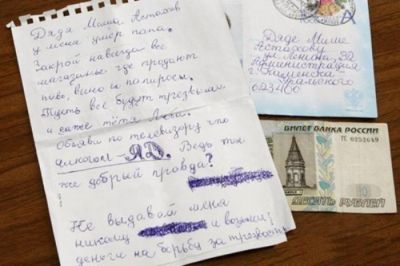 Дядя Миша Астахов
у меня умер папа.
Закрой навсегда все
магазины где продают
пиво, вино и папиросы.
Пусть все будут трезвыми
и даже тётя Люба.
Объяви по телевизору что
алкоголь – ЯД. Ведь ты
же добрый правда?
Не выдавай меня
никому и возьми
деньги на борьбу за трезвость
Дяде Мише
Астахову
ул. Ленина, 32
Администрация
г. Каменска
Уральского
623400
БИЛЕТ БАНКА РОССИИ
10
ДЕСЯТЬ РУБЛЕЙ